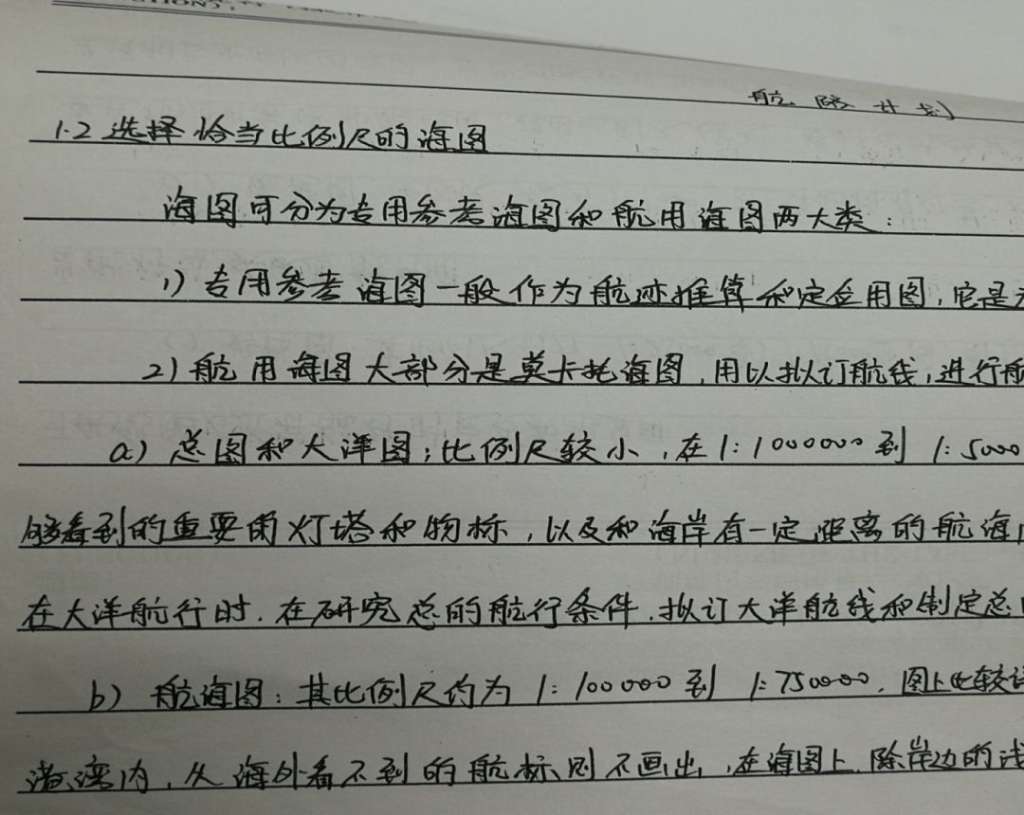 航 段 计 划
1.2 选择恰当比例尺的海图
海图可分为专用参考海图和航用海图两大类:
1) 专用参考海图一般作为航迹推算和定位用图,它是
2) 航用海图大部分是莫卡托海图,用以拟订航线,进行航
a) 总图和大洋图:比例尺较小,在1:1000000到 1:5000
够看到的重要的灯塔和物标,以及和海岸有一定距离的航海
在大洋航行时.在研究总的航行条件.拟订大洋航线和制定总
b) 航海图:其比例尺约为 1:100000 到 1:750000.图上比较详
港湾内,从海外看不到的航标则不画出,在海图上,除岸边的浅